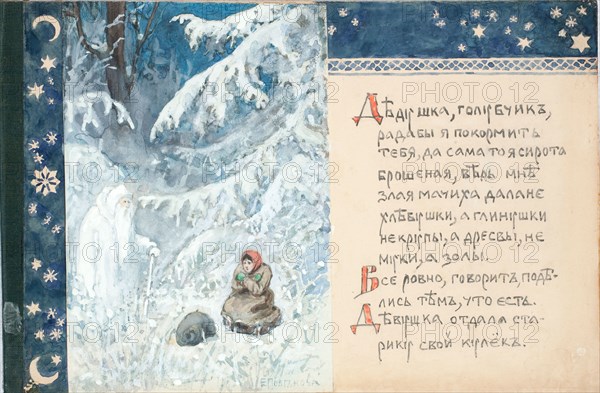 Дѣдушка, голубчикъ,
рада бы я покормить
тебя, да сама то я сирота
брошеная, вѣрь мнѣ
злая мачиха дала не
хлѣбушки, а глинушки
не крупы, а дресвы, не
муки, а золы.
Все ровно, говоритъ, подѣ-
лись тѣмъ, что есть.
Дѣвушка отдала ста-
рику свой кулекъ.
PHOTO 12